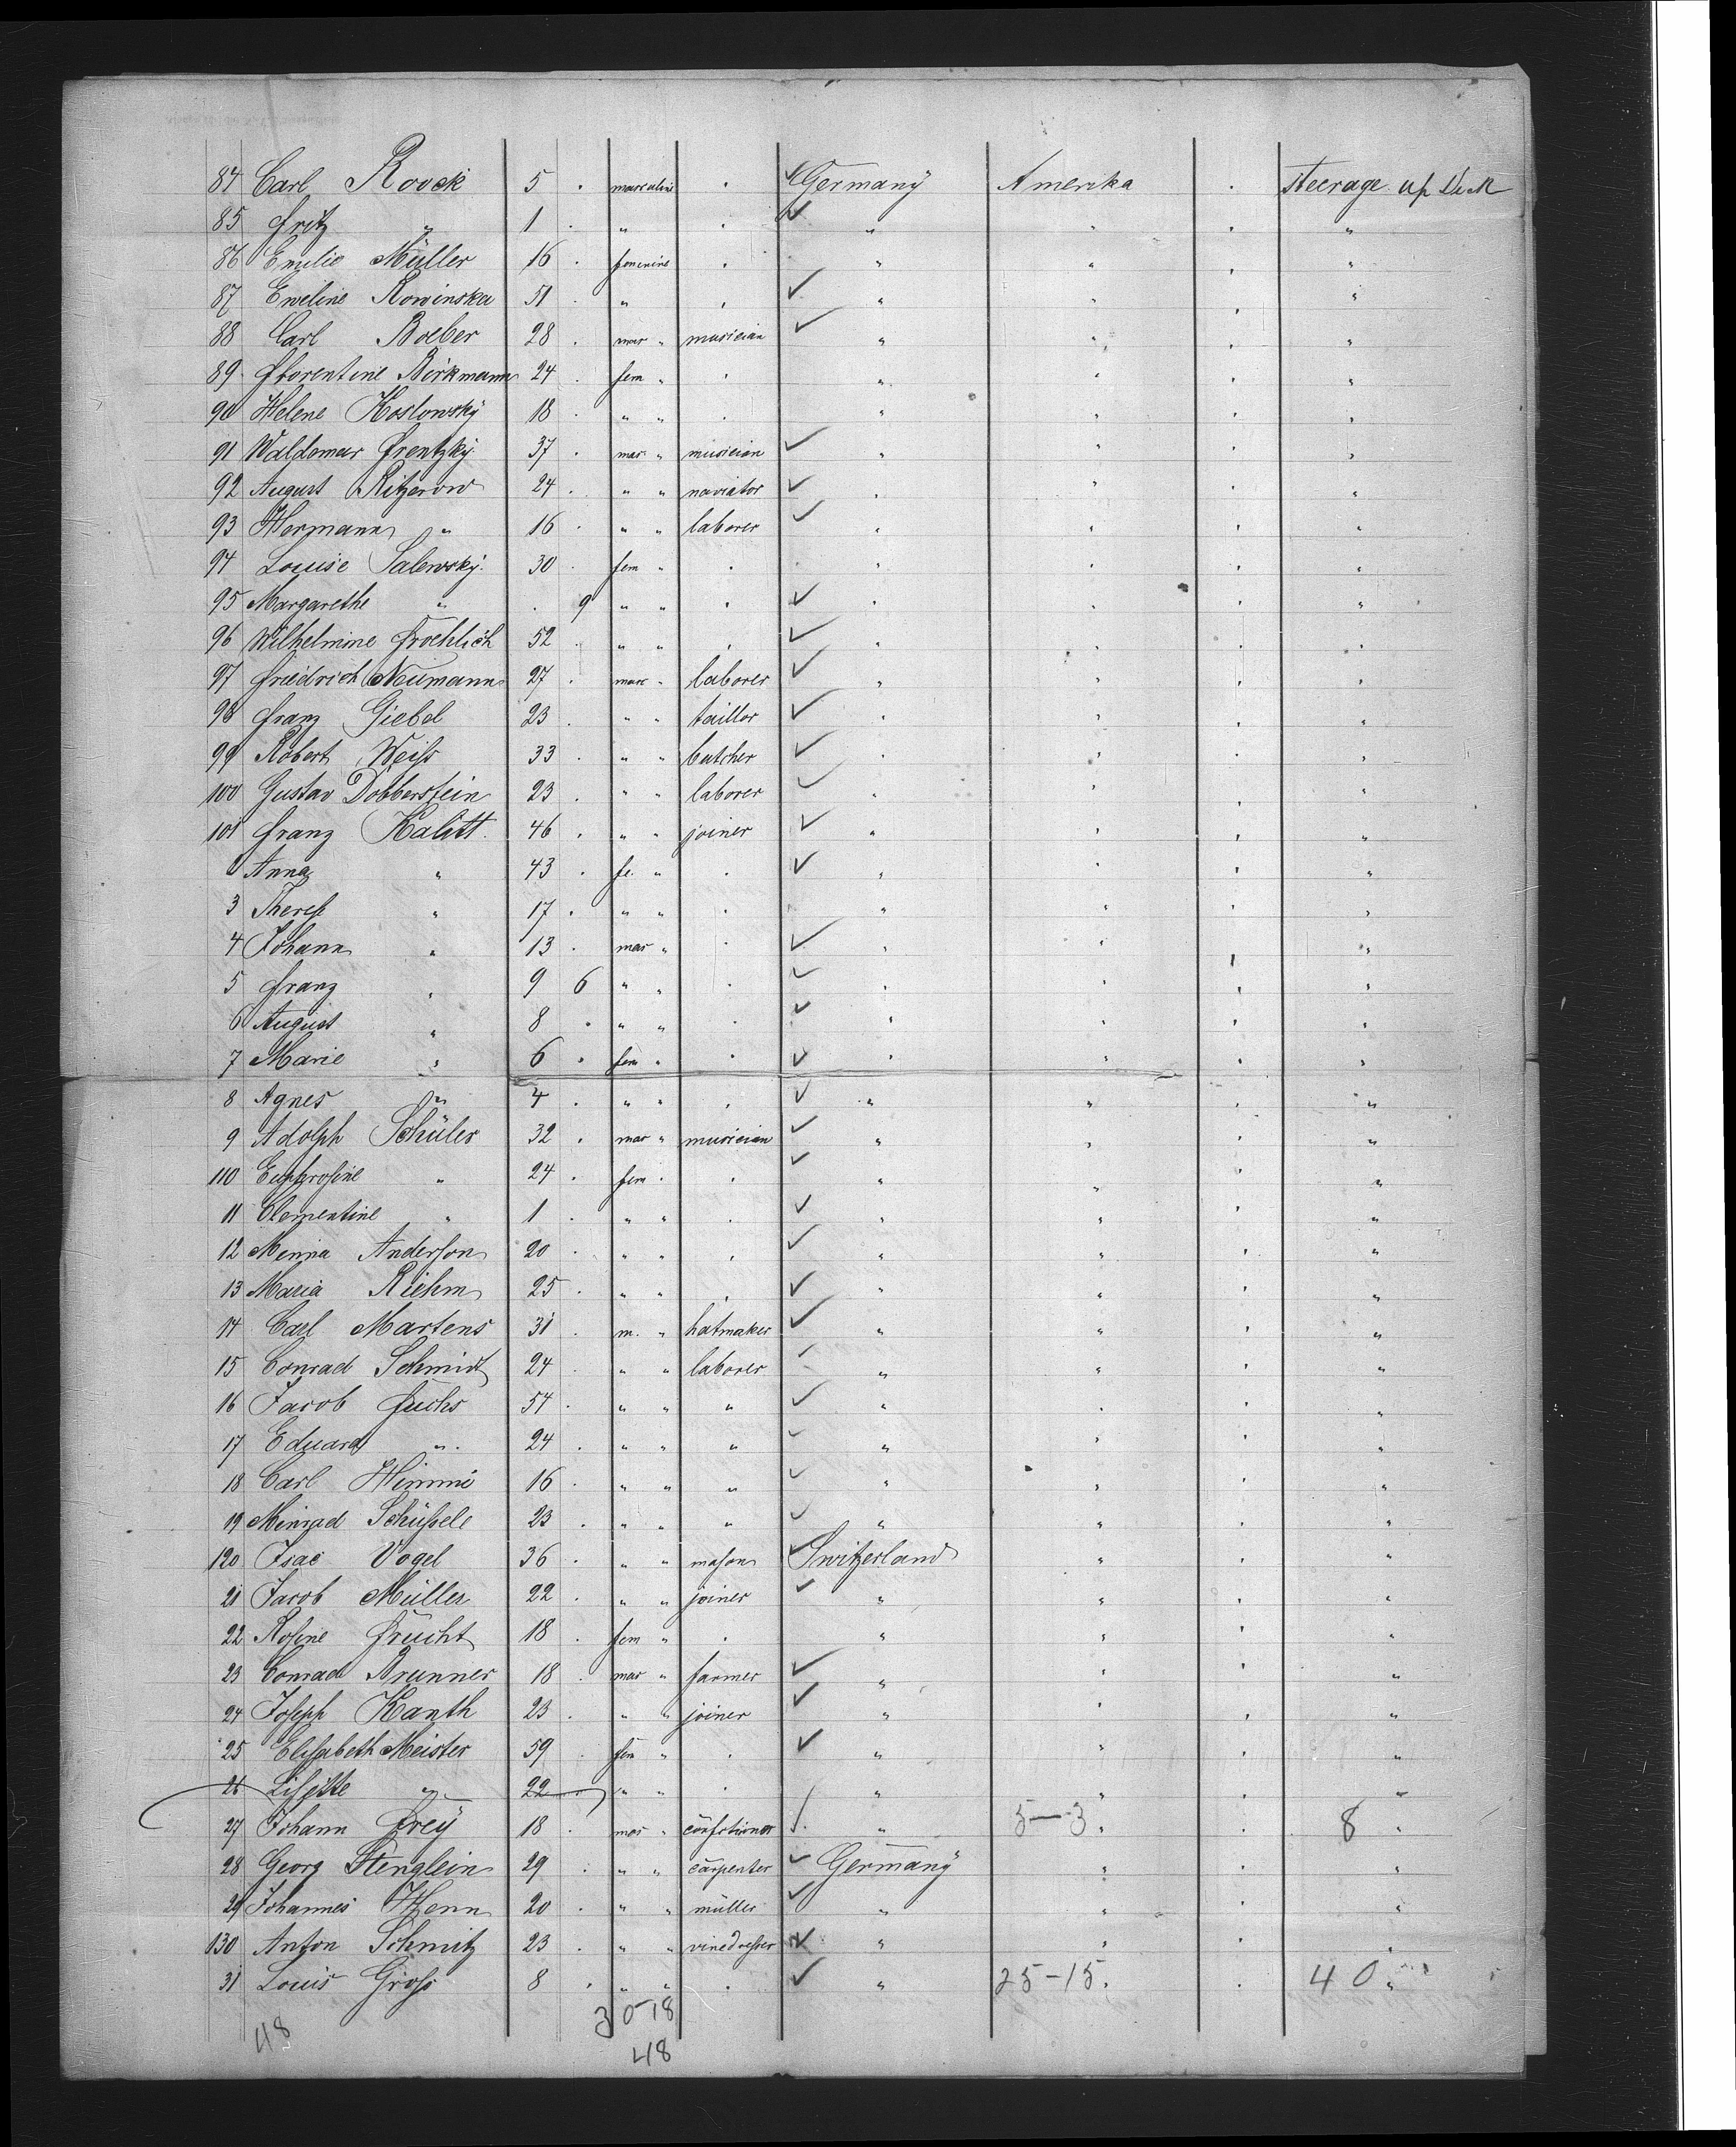 84 Carl Roock 5 . masculine . Germany Amerika . Steerage up Deck
85 Fritz " 1 . " . " " . "
86 Emilie Müller 16 . feminine . " " . "
87 Eveline Rowinska 51 . " . " " . "
88 Carl Boeber 28 . mas " musician " " . "
89 Florentine Birkmann 24 . fem " . " " . "
90 Helene Koslowsky 18 . " " . " " . "
91 Waldemar Frentzky 37 . mas " musician " " . "
92 August Ritzerow 24 . " " naviator " " . "
93 Hermann " 16 . " " laborer " " . "
94 Louise Salewsky 30 . fem " . " " . "
95 Margarethe " . 9 " " . " " . "
96 Wilhelmine Froehlich 52 . " " . " " . "
97 Friedrich Neumann 27 . mas " laborer " " . "
98 Franz Giebel 23 . " " taillor " " . "
99 Robert Weiss 33 . " " butcher " " . "
100 Gustav Dobberstein 23 . " " laborer " " . "
101 Franz Kalitt 46 . " " joiner " " . "
Anna " 43 . fe. " . " " . "
3 Therese " 17 . " " . " " . "
4 Johann " 13 . mas " . " " . "
5 Franz " 9 6 " " . " " . "
6 August " 8 . " " . " " . "
7 Marie " 6 . fem " . " " . "
8 Agnes " 4 . " " . " " . "
9 Adolph Schüler 32 . mas " musician " " . "
110 Euphrosine " 24 . fem " . " " . "
11 Clementine " 1 . " " . " " . "
12 Menna Anderson 20 . " " . " " . "
13 Maria Riehm 25 . " " . " " . "
14 Carl Martens 31 . m. " hatmaker " " . "
15 Conrad Schmidt 24 . " " laborer " " . "
16 Jacob Fuchs 54 . " " " " " . "
17 Eduard " 24 . " " " " " . "
18 Carl Himmi 16 . " " " " " . "
19 Meinrad Schüssele 23 . " " " " " . "
120 Isac Vogel 36 . " " mason Switzerland " . "
21 Jacob Müller 22 . " " joiner " " . "
22 Rosine Frucht 18 . fem " . " " . "
23 Conrad Brunner 18 . mas " farmer " " . "
24 Joseph Kanth 23 . " " joiner " " . "
25 Elisabeth Meister 59 . fem " . " " . "
26 Lisette " 22 " " . " " . "
27 Johann Frey 18 . mas " confectioner " 5-3 " . 8 "
28 Georg Stenglein 29 . " " carpenter Germany " . "
29 Johannes Henn 20 . " " müller " " . "
130 Anton Schmitz 23 . " " vinedresser " " . "
31 Louis Gross 8 . " " . " 25-15 " . 40 "
48 30-18
48